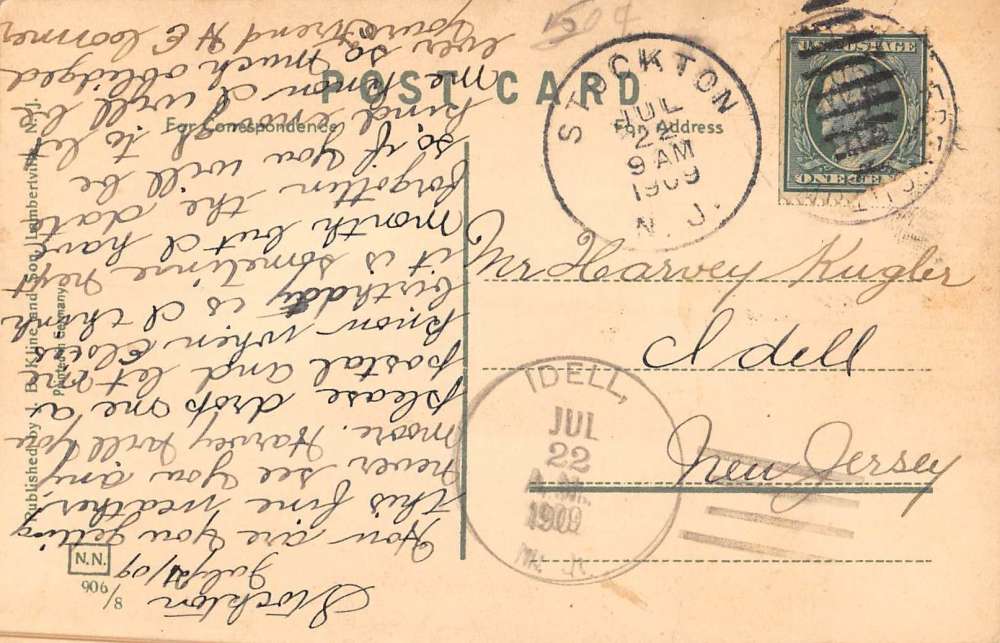 1507
POST CARD
For Correspondence
For Address
STOCKTON
JUL
22
9 AM
1909
N. J.
U.S. POSTAGE
ONE CENT
Mr Harvey Kugler
Idell
New Jersey
IDELL,
JUL
22
A.M.
1909
N. J.
Stockton
July 21/09
How are you getting
this fine weather,
never see you any
more. Harvey will you
please drop me a
postal and let me
know when
birthday is I think
it is sometime next
month but I have
forgotten the date
so if you will be
kind enough to let
me know I will be
ever so much obliged
Your friend H E
Published by J. B. Kline and Son, Lambertville, N. J.
Printed in Germany.
N.N.
906/8